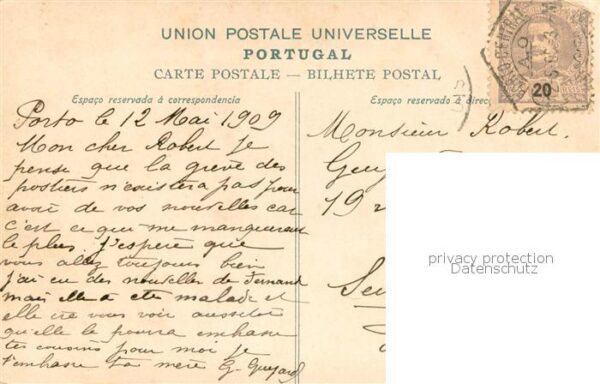 UNION POSTALE UNIVERSELLE
PORTUGAL
CARTE POSTALE — BILHETE POSTAL
Espaço reservada á correspondencia
Espaço reservado á direc
20
Porto le 12 Mai 1909
Mon cher Robert je
pense que la greve des
postiers n'existera pas pour
avoir de vos nouvelles car
c'est ce qui me manquerait
le plus. J'espere que
vous allez toujours bien
j'ai eu des nouvelles de Fernand
mais elle a ete malade et
elle ira vous voir aussitot
qu'elle le pourra embrasse
tes cousins pour moi je
t'embrasse ta mere G. Guyard
Monsieur Robert
Guy
19
privacy protection
Datenschutz